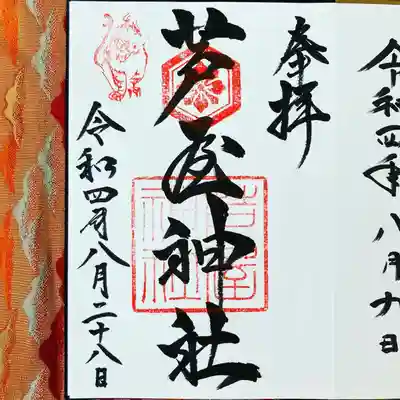 令和四年八月九日
奉拝
芦屋神社
芦屋
神社
令和四年八月二十八日